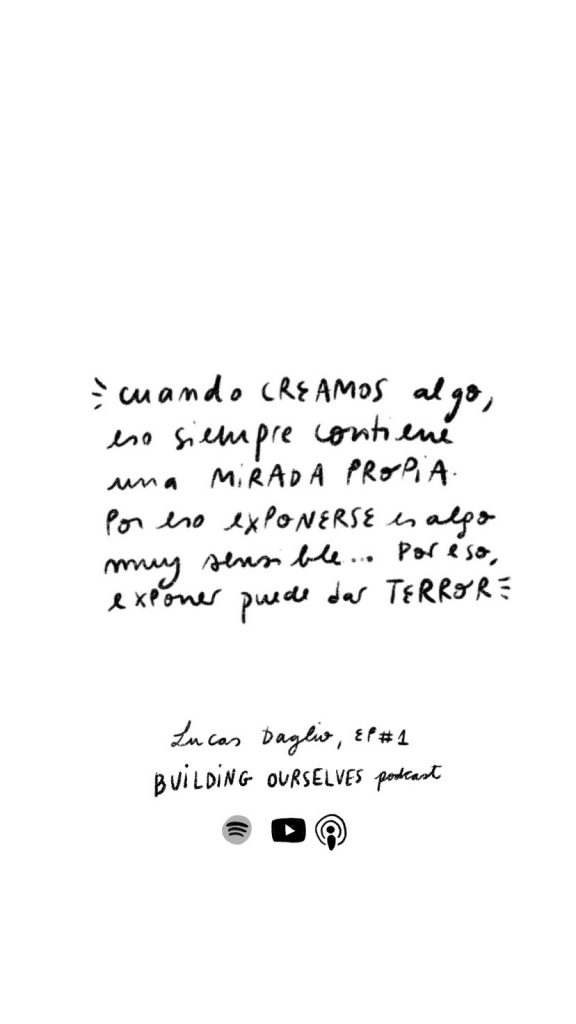 cuando CREAMOS algo,
eso siempre contiene
una MiRADA PROPiA.
Por eso EXPONERSE es algo
muy sensible... Por eso,
exponer puede dar TERROR
Lucas Daglio, EP#1
BUiLDiNG OURSELVES podcast